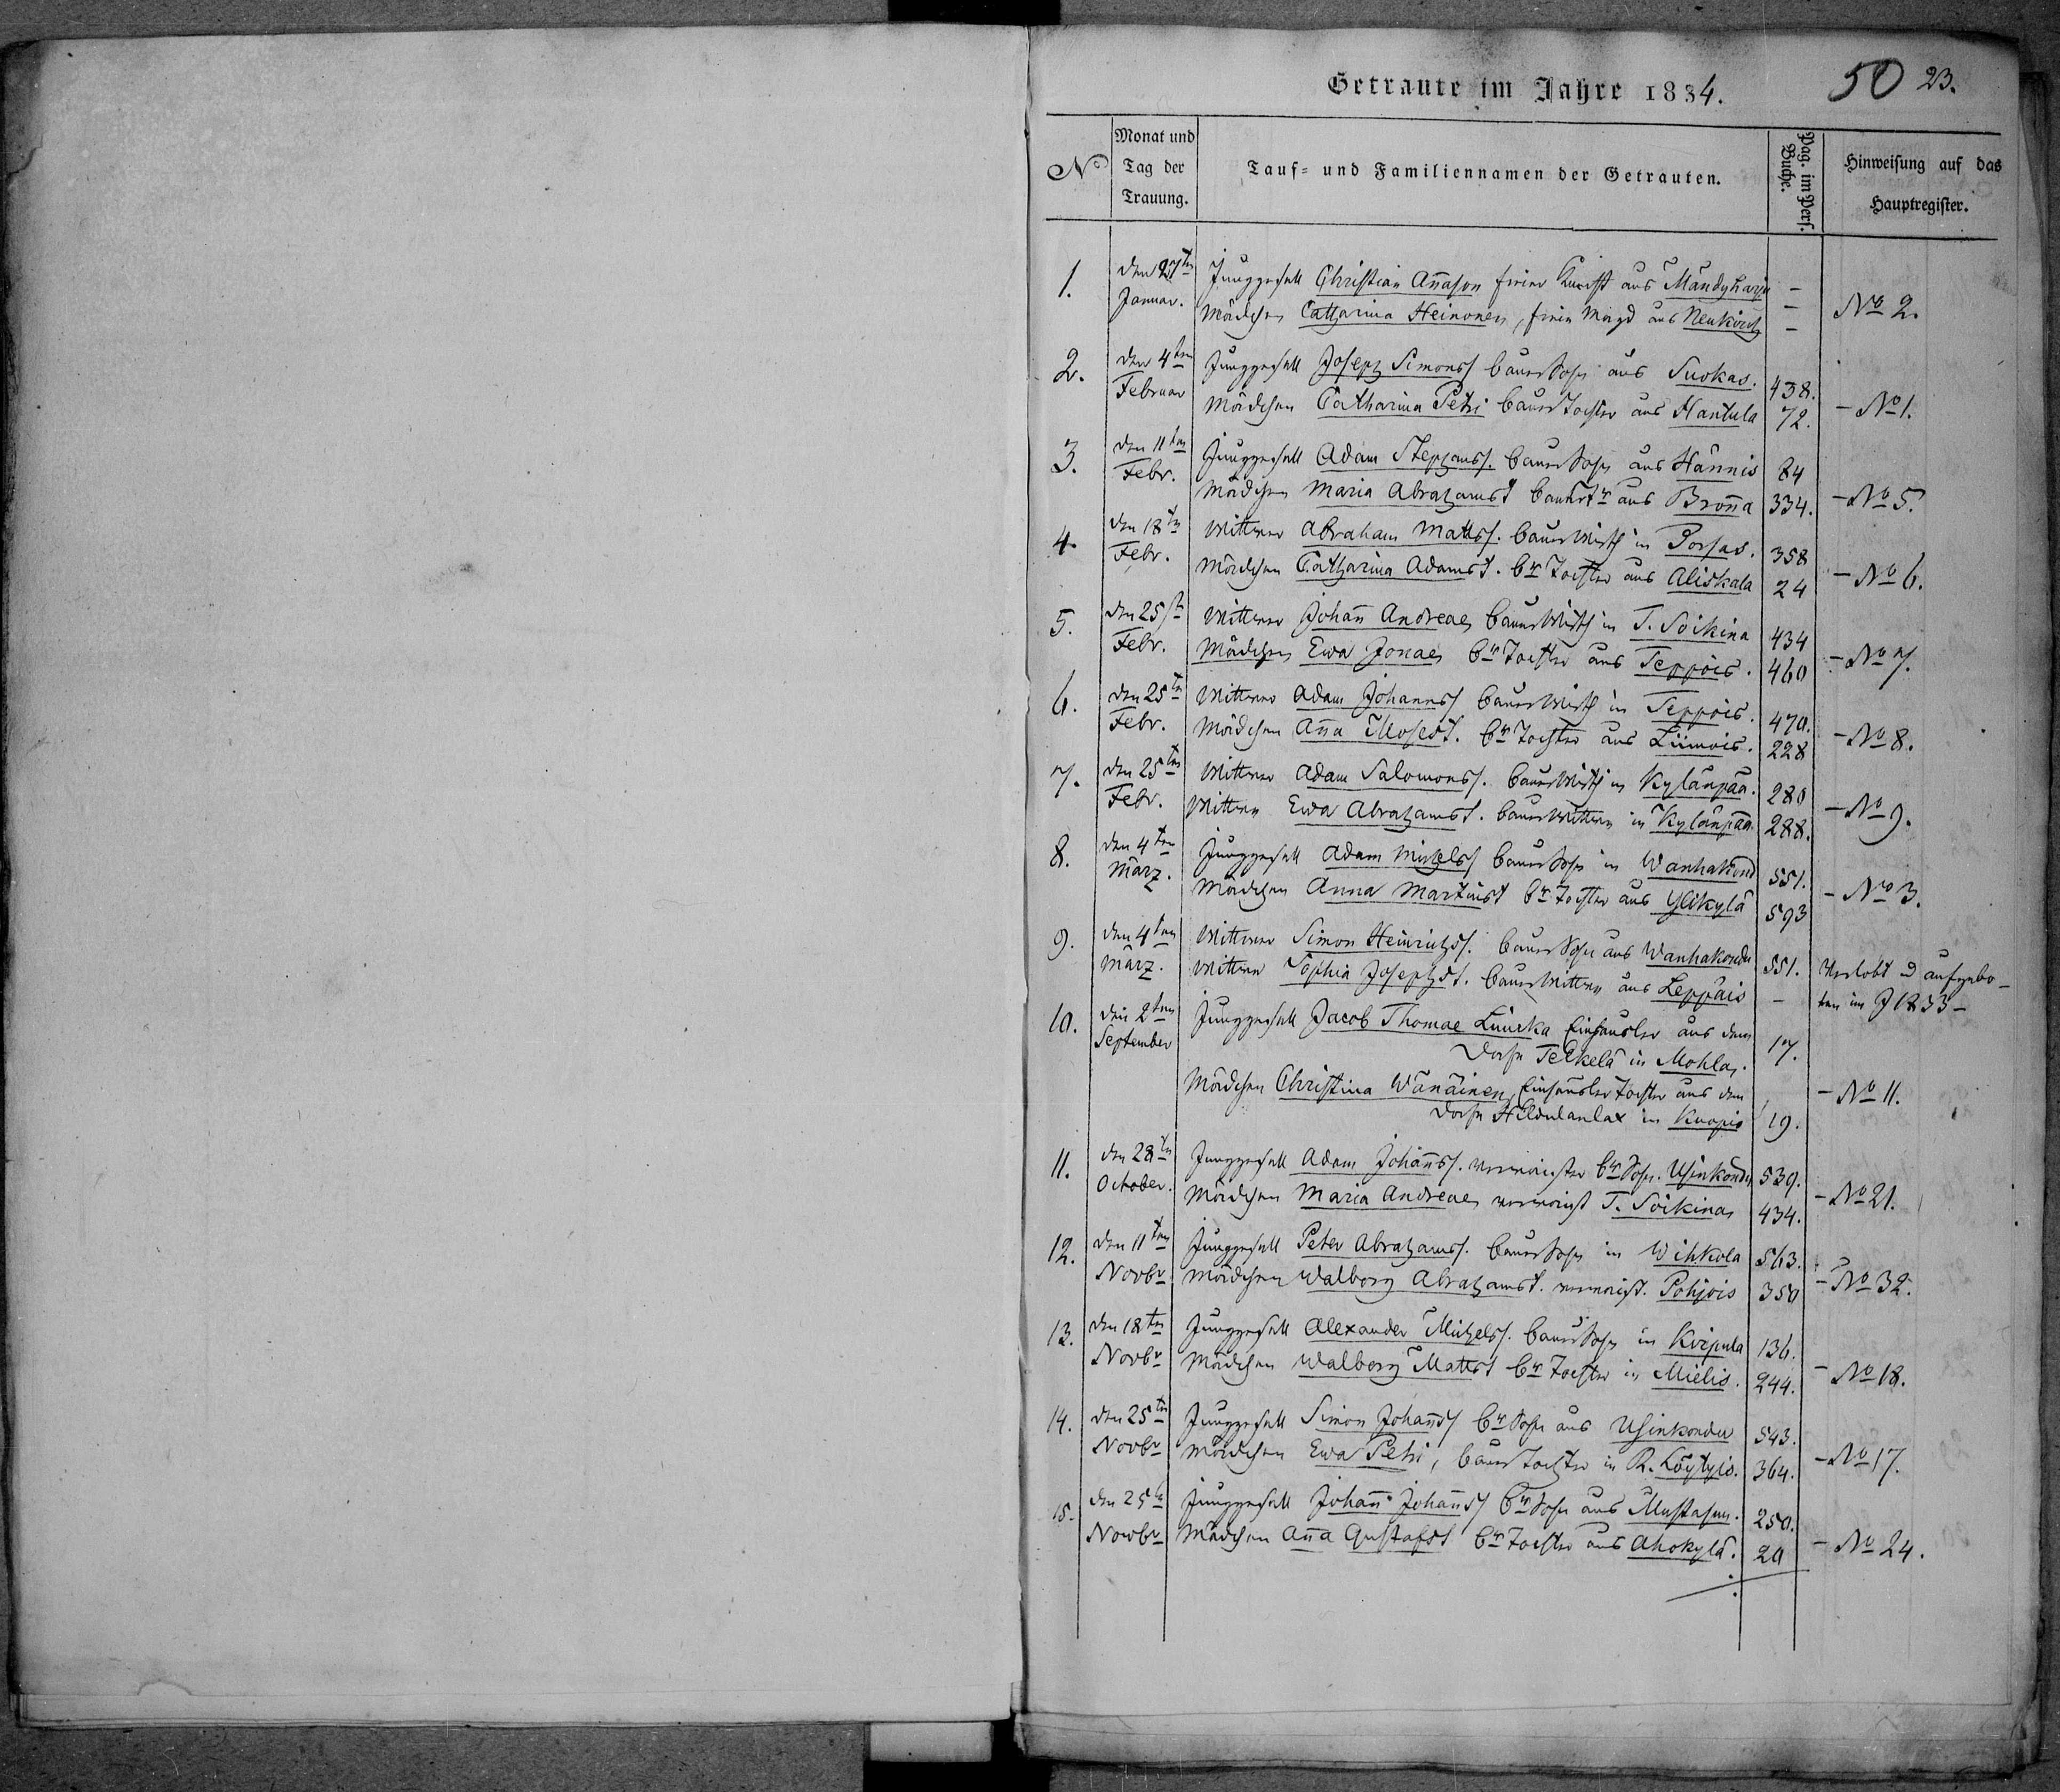 Getraute im Jahre 1834.
50 23.
No
Monat und Tag der Trauung.
Tauf- und Familiennamen der Getrauten.
Pag. im Pers. Buche.
Hinweisung auf das Hauptregister.
1. den 27ten Junggesell Christian Añason freier Knecht aus Mändyharju –
Januar. Mädchen Catharina Heinonen, freie Magd aus Neukirch – No 2.
2. den 4ten Junggesell Joseph Simonss Bauersohn aus Suokas. 438.
Februar Mädchen Catharina Petri Bauertochter aus Hantula 72. – No 1.
3. den 11ten Junggesell Adam Stephanss. Bauersohn aus Hännis 84
Febr. Mädchen Maria Abrahamst Bauert aus Broña 334. – No 5.
4. den 18ten Wittwer Abraham Matts. Bauerwirth in Porsas. 358
Febr. Mädchen Catharina Adamst. Br Tochter aus Aliskala 24 – No 6.
5. den 25st Wittwer Johañ Andreae Bauerwirth in T. Soikina 434
Febr. Mädchen Ewa Jonae Br Tochter aus Teppois. 460 – No 7.
6. den 25ten Wittwer Adam Johannss Bauerwirth in Teppois. 470.
Febr. Mädchen Aña Mosest. Br Tochter aus Liimois. 228 – No 8.
7. den 25ten Wittwer Adam Salomonss. Bauerwirth in Kylänpää. 280
Febr. Wittwe Ewa Abrahamst. Bauerwittwe in Kylänpää 288. – No 9.
8. den 4ten Junggesell Adam Michelss Bauersohn in Wanhakond 551.
März. Mädchen Anna Martinst Br Tochter aus Ylikylä 593 – No 3.
9. den 4ten Wittwer Simon Heinrichss. Bauersohn aus Wanhakondu 551. Verlobt u aufgebo-
März. Wittwe Sophia Josephst. Bauerwittwe aus Leppäis – ten im J 1833 –
10. den 2ten Junggesell Jacob Thomae Luucka Einhäusler aus dem
September Dorfe Telkelä in Mohla. 17.
Mädchen Christina Wänäinen Einhäuslertochter aus dem – No 11.
Dorfe Hildulanlax in Kuopio 19.
11. den 28ten Junggesell Adam Johañs. Br Sohn. Usinkondu 539.
October. Mädchen Maria Andreae T. Soikina 434. – No 21.
12. den 11ten Junggesell Peter Abrahams. Bauersohn in Wihkola 563.
Novbr Mädchen Walborg Abrahamst. Pohjois 350 – No 32.
13. den 18ten Junggesell Alexander Michelss. Bauersohn in Kirpula 136.
Novbr Mädchen Walborg Mattst Br Tochter in Mielis. 244. – No 18.
14. den 25ten Junggesell Simon Johañs Br Sohn aus Usinkondu 543.
Novbr Mädchen Ewa Petri, Bauertochter in R. Löytyis. 364. – No 17.
15. den 25te Junggesell Johañ Johañs Br Sohn aus Mustasun. 250.
Novbr Mädchen Aña Gustafst Br Tochter aus Ahokylä. 20 – No 24.